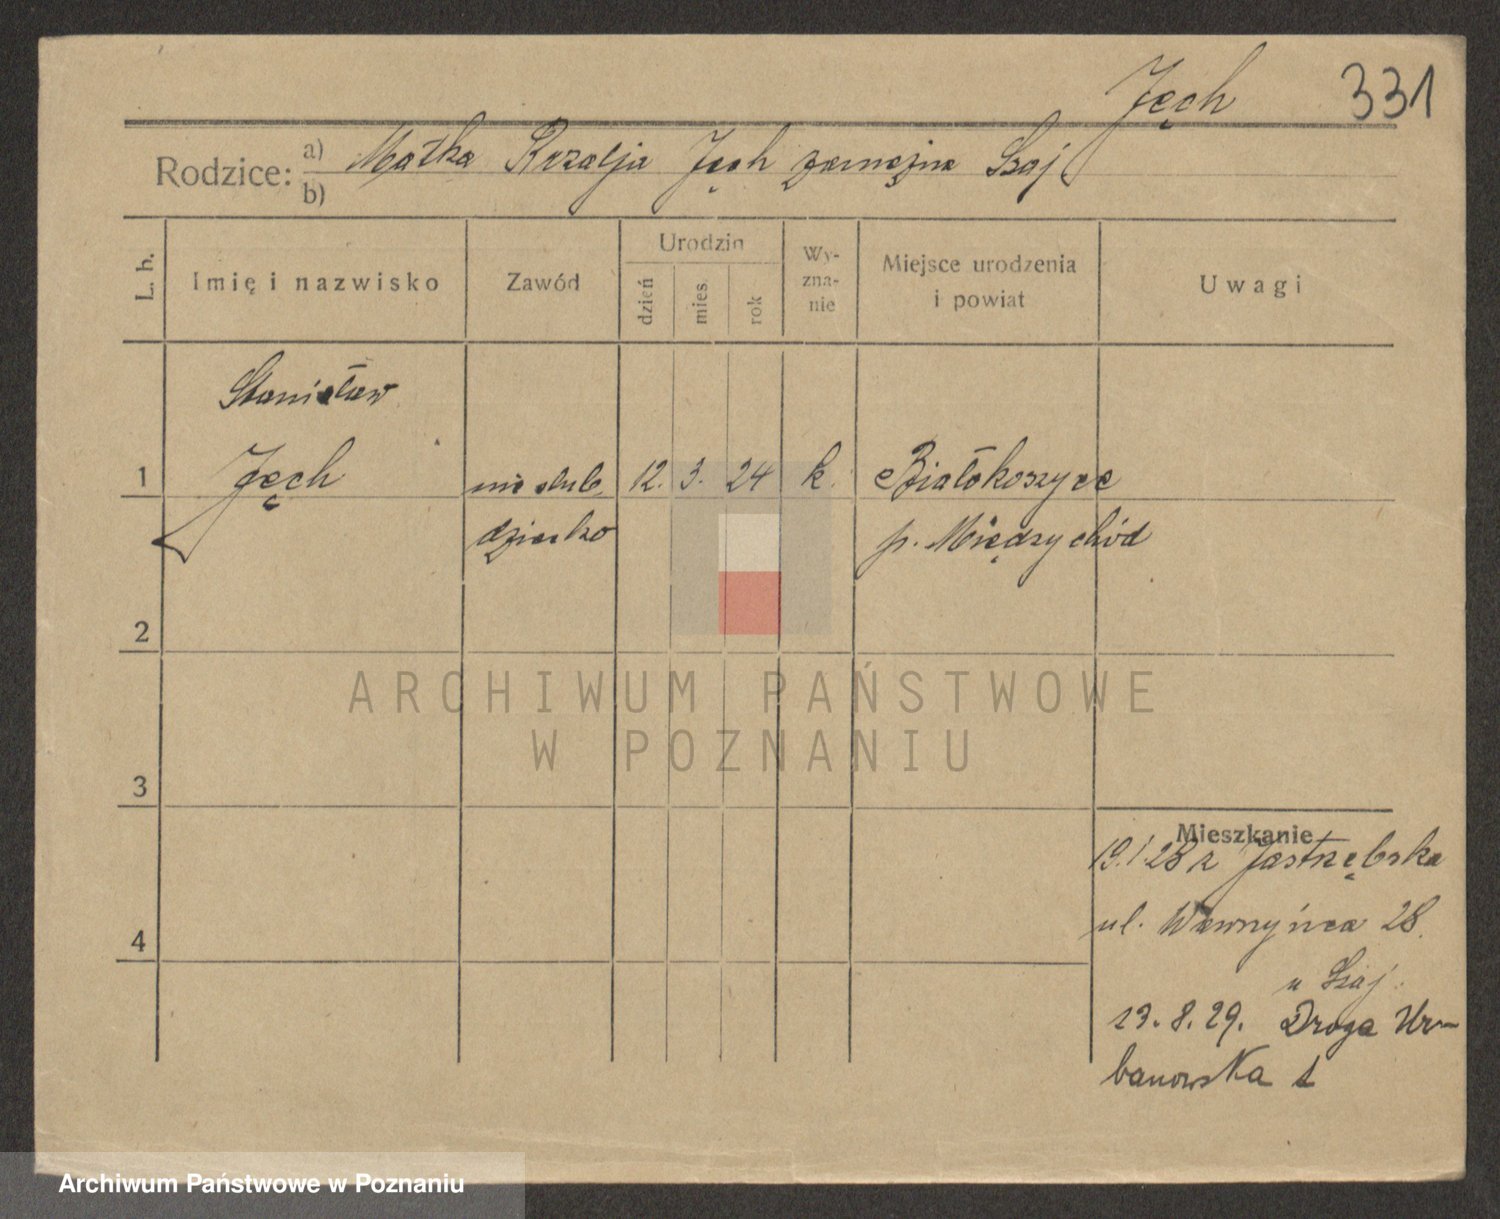 Jęch 331
Rodzice: a) Matka Rozalja Jęch zamężna Szaj
b)
L. h. Imię i nazwisko Zawód Urodzin dzień mies. rok Wy-zna-nie Miejsce urodzenia i powiat Uwagi
Stanisław
1 Jęch nieślub. 12. 3. 24 k. Białokoszyce
dziecko p. Międzychód
2
ARCHIWUM PAŃSTWOWE
W POZNANIU
3
Mieszkanie
19.1.28 z Jastrzębska
ul. Wawrzyńca 28.
4
u Szaj.
13.8.29. Droga Ur-
banowska 1
Archiwum Państwowe w Poznaniu